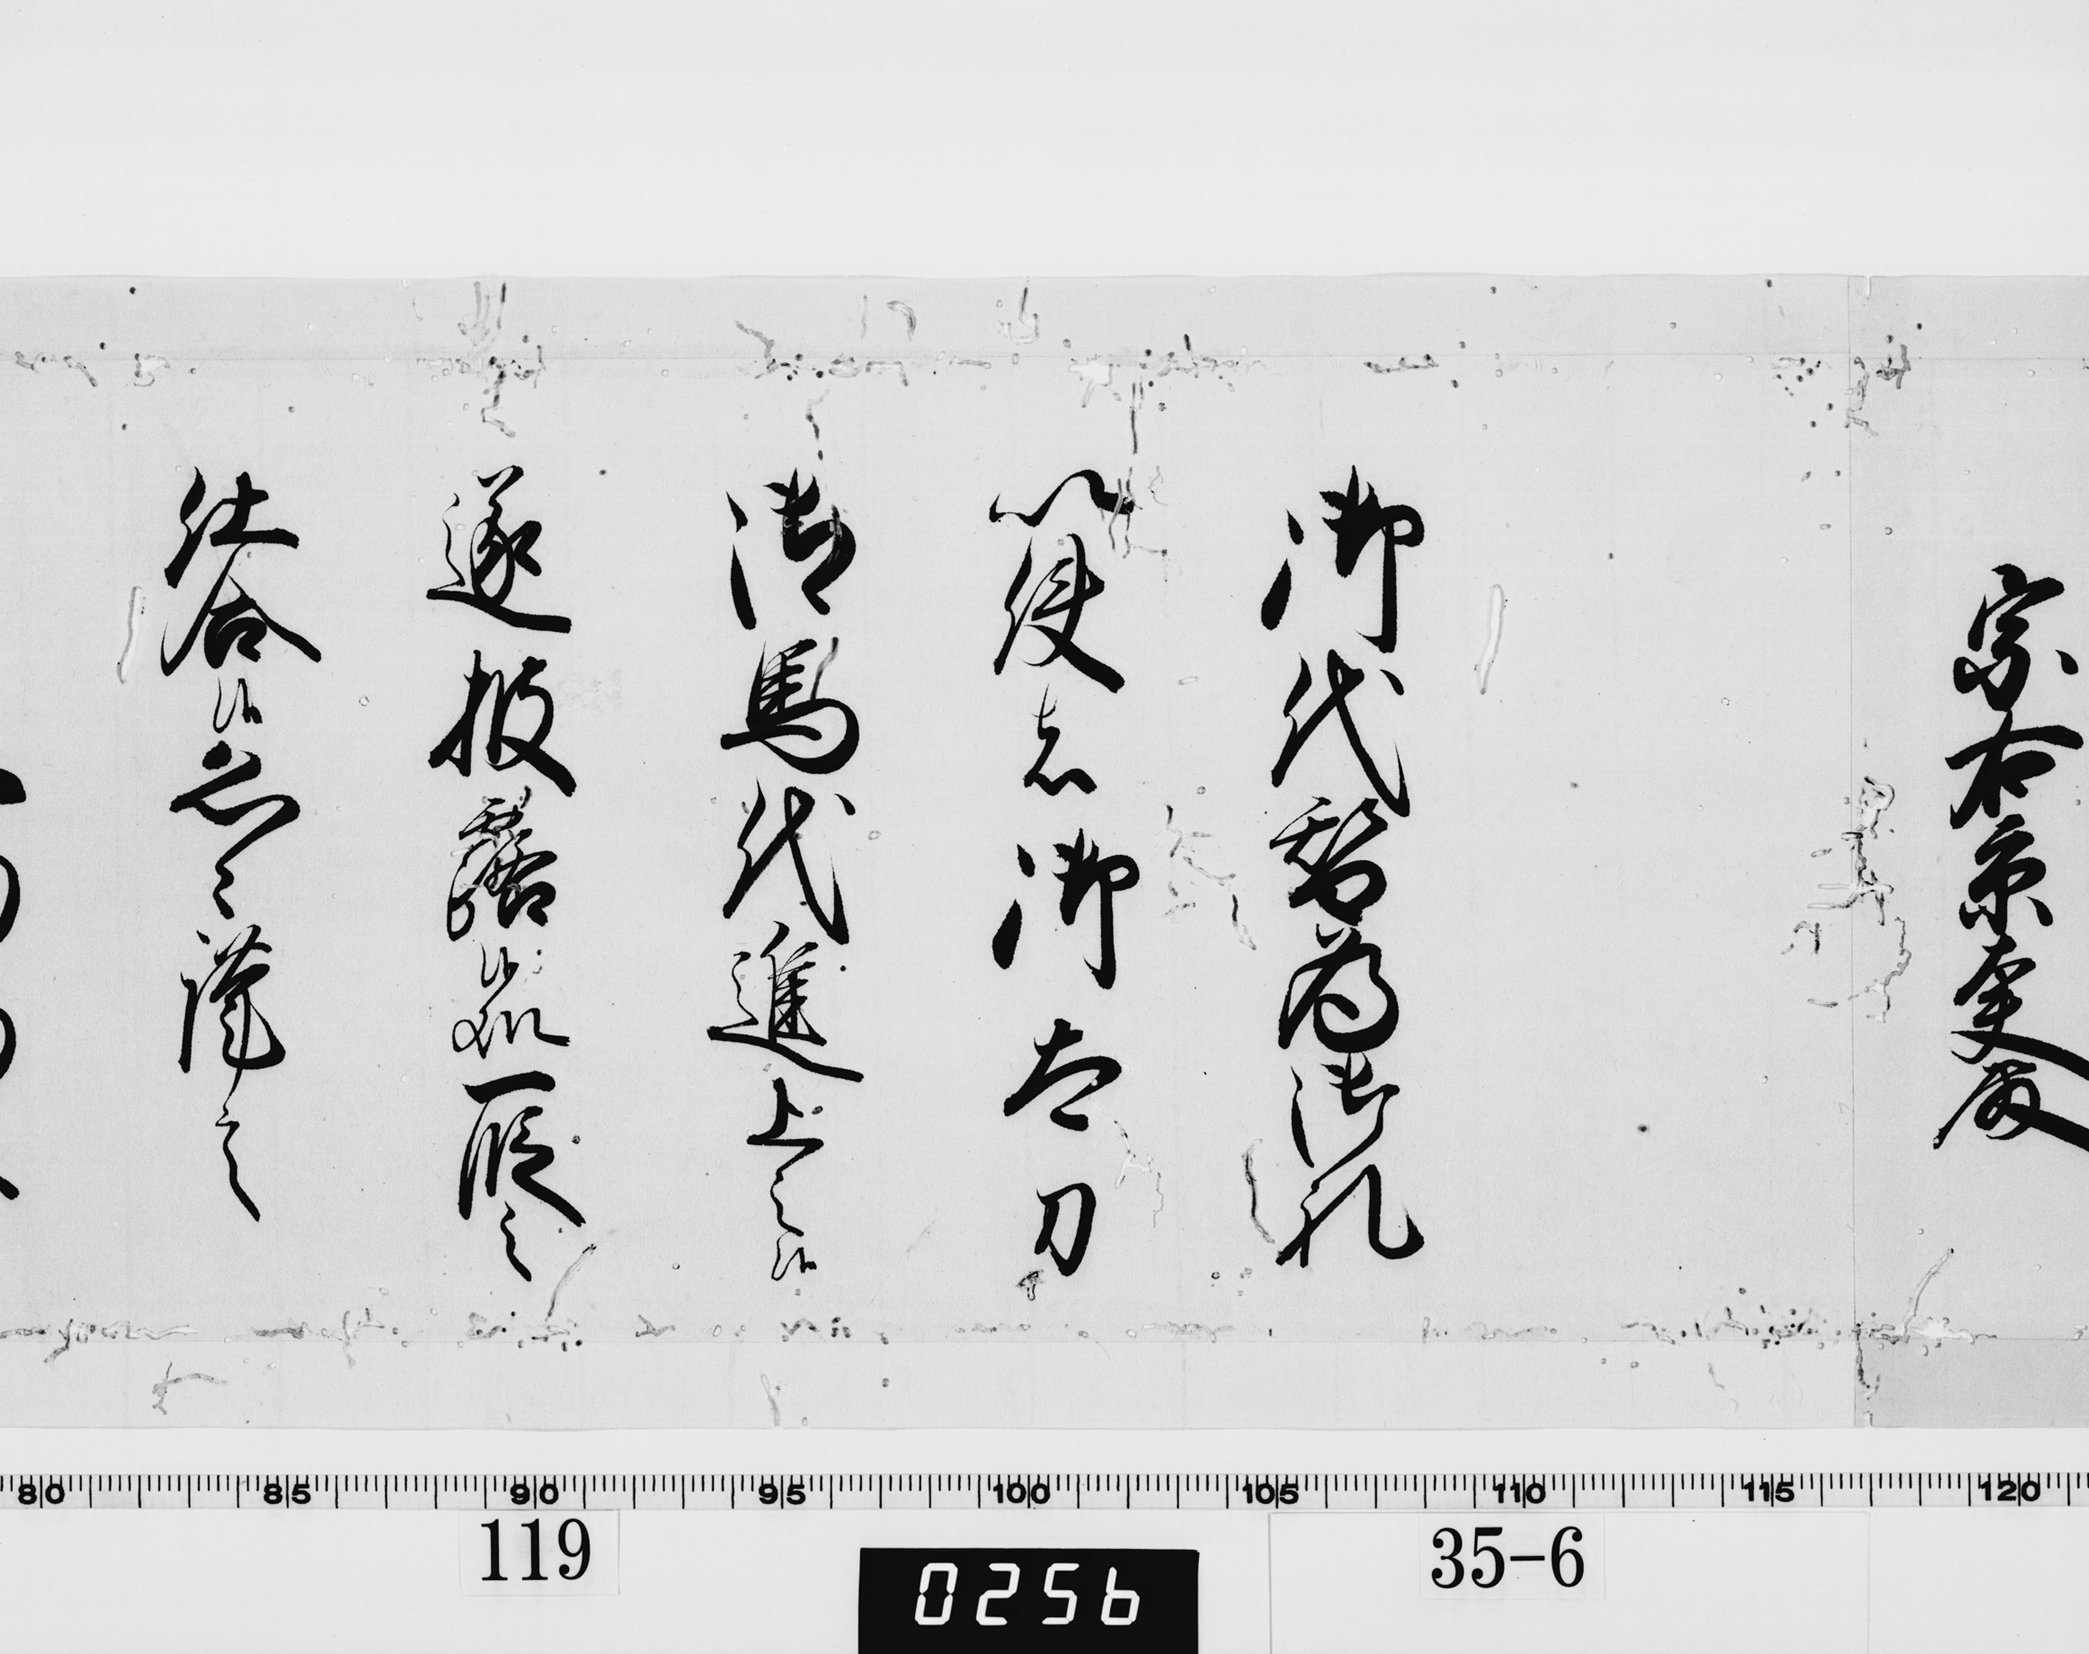 宗右京大夫殿
御代替為御礼
以使者御太刀
御馬代進上之候
遂披露候処一段之
仕合候恐々謹言
80 85 90 95 100 105 110 115 120
119
0256
35-6